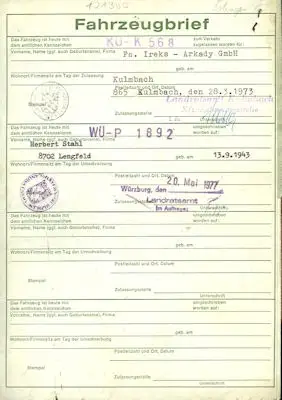 Fahrzeugbrief
Das Fahrzeug ist heute mit dem amtlichen Kennzeichen
KU-K 568
zum Verkehr zugelassen worden für:
Vorname, Name (ggf. auch Geburtsname), Firma
Fa. Ireks - Arkady GmbH
geb. am
Wohnort/Firmensitz am Tag der Zulassung
Kulmbach
Postleitzahl und Ort, Datum
865 Kulmbach, den 28.3.1973
Zulassungsstelle
Landratsamt Kulmbach
Das Fahrzeug ist heute mit dem amtlichen Kennzeichen
WÜ-P 1892
umgeschrieben worden auf:
Vorname, Name (ggf. auch Geburtsname), Firma
Herbert Stahl
8702 Lengfeld
geb. am
13.9.1943
Wohnort/Firmensitz am Tag der Umschreibung
Postleitzahl und Ort, Datum
Würzburg, den 20. Mai 1977
Landratsamt
Im Auftrage
Zulassungsstelle
Unterschrift
Das Fahrzeug ist heute mit dem amtlichen Kennzeichen
umgeschrieben worden auf:
Vorname, Name (ggf. auch Geburtsname), Firma
geb. am
Wohnort/Firmensitz am Tag der Umschreibung
Postleitzahl und Ort, Datum
Stempel
Zulassungsstelle
Unterschrift
Das Fahrzeug ist heute mit dem amtlichen Kennzeichen
umgeschrieben worden auf:
Vorname, Name (ggf. auch Geburtsname), Firma
geb. am
Wohnort/Firmensitz am Tag der Umschreibung
Postleitzahl und Ort, Datum
Stempel
Zulassungsstelle
Unterschrift